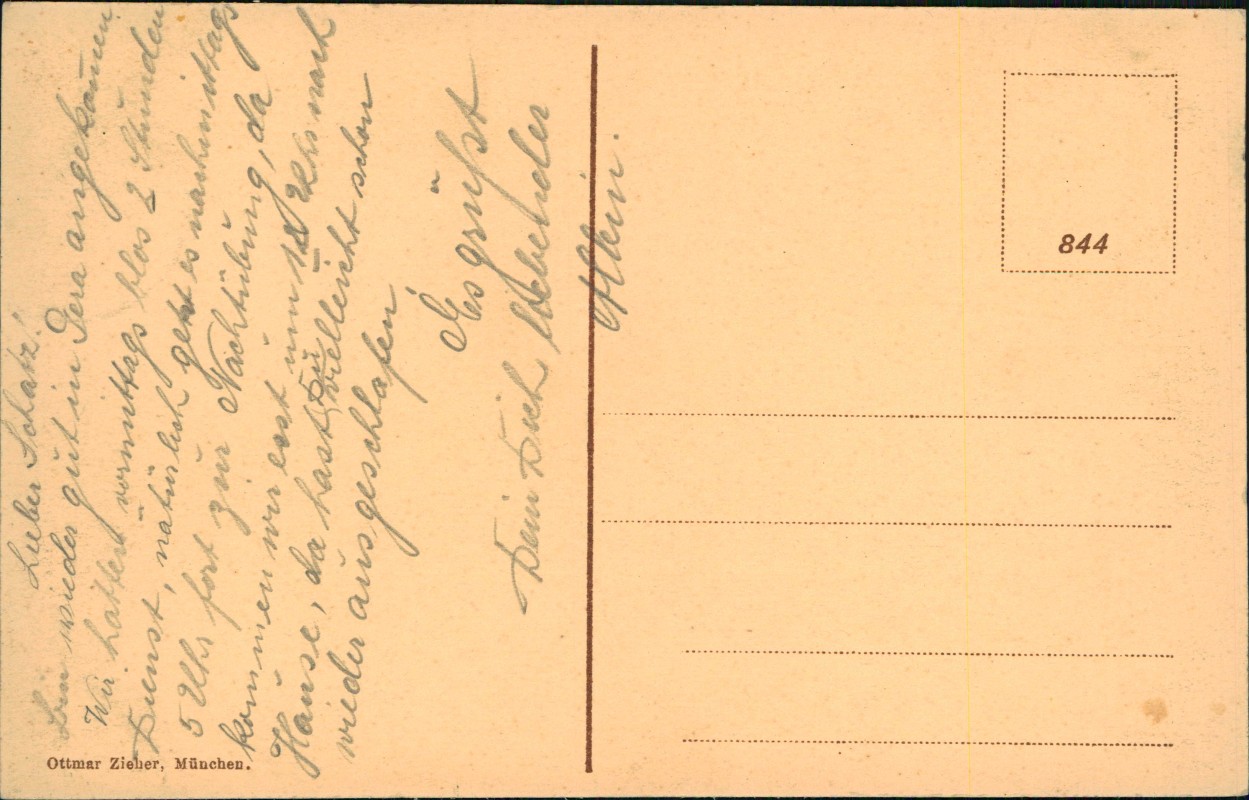 Lieber Schatz!
Bin wieder gut in Gera angekommen
Wir hatten vormittags blos 2 Stunden
Dienst, natürlich geht es nachmittags
5 Uhr fort zur Nachtübung, da
kommen wir erst um 12 Uhr nach
Hause, da hast Du vielleicht schon
wieder ausgeschlafen
Es grüßt
Dein Dich liebender
Alwin.
844
Ottmar Zieher, München.